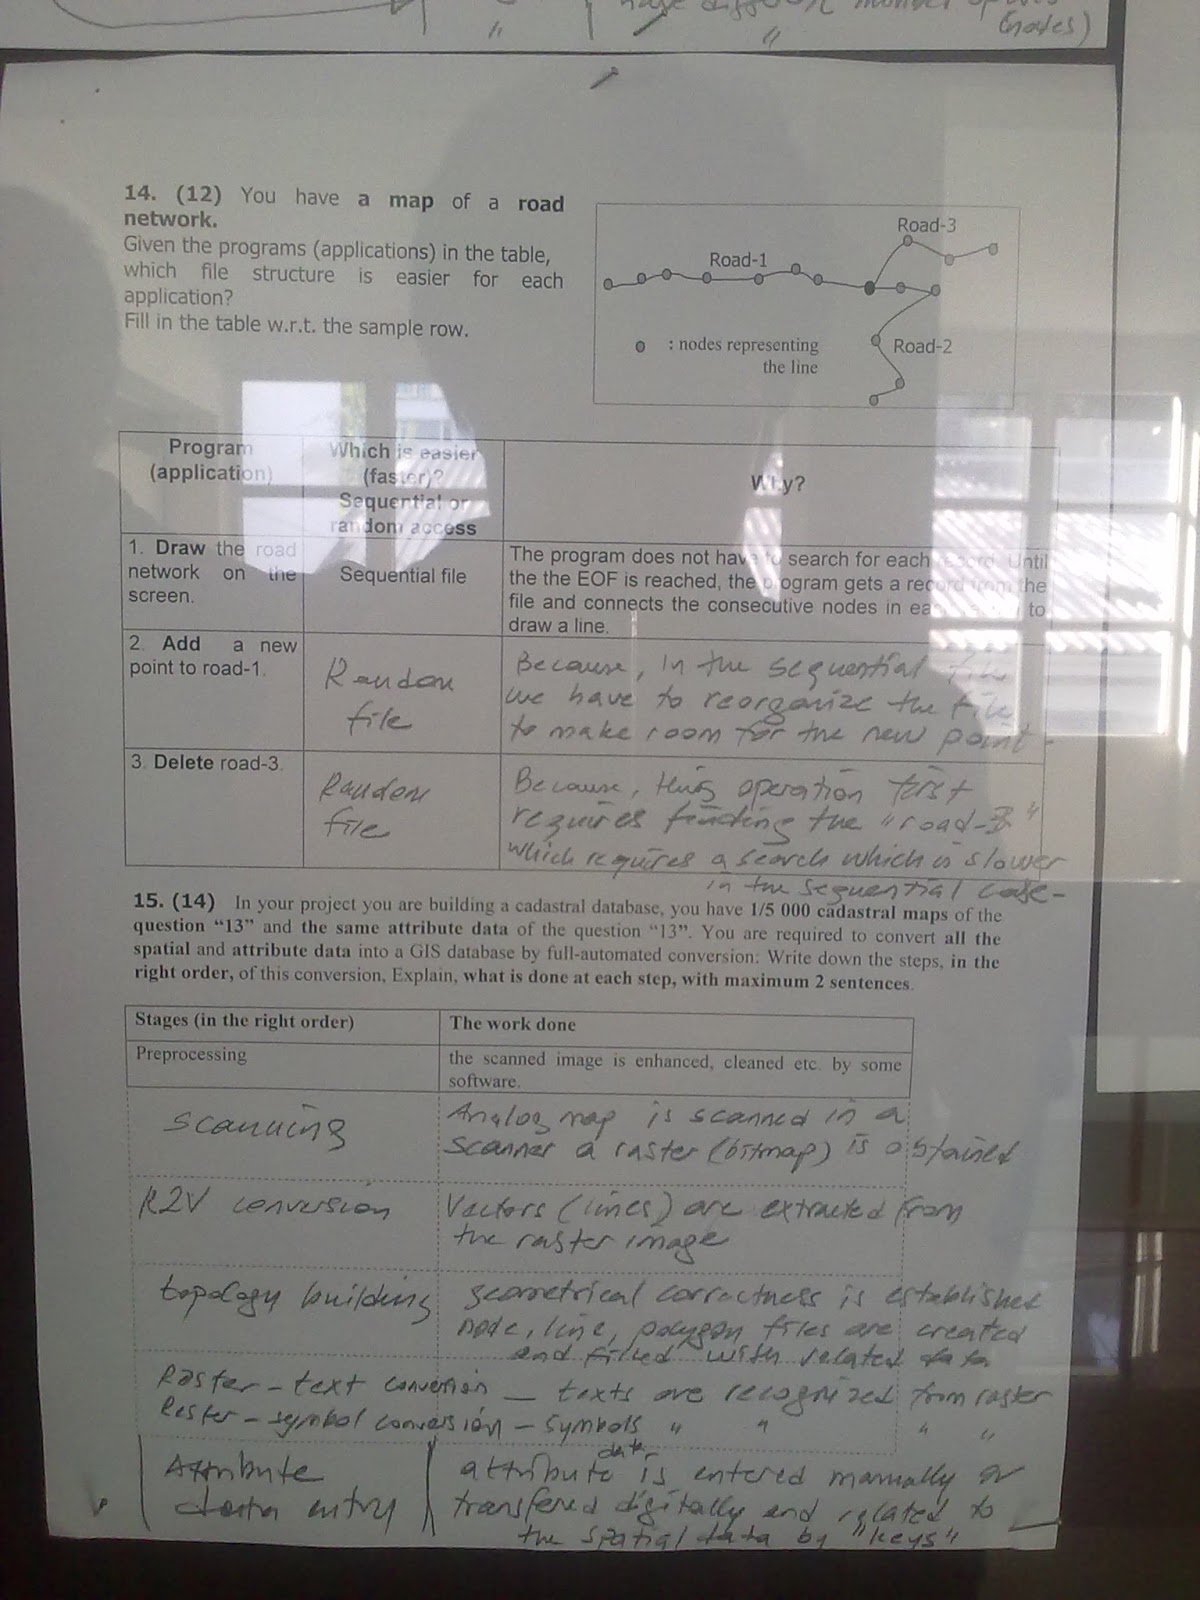 have different number of
" " (nodes)
14. (12) You have a map of a road
network.
Given the programs (applications) in the table,
which file structure is easier for each
application?
Fill in the table w.r.t. the sample row.
Road-3
Road-1
Road-2
: nodes representing
the line
Program
(application)
Which is easier
(faster)?
Sequential or
random access
Why?
1. Draw the road
network on the
screen.
Sequential file
The program does not have to search for each record. Until
the the EOF is reached, the program gets a record from the
file and connects the consecutive nodes in each to
draw a line.
2. Add a new
point to road-1.
Random
file
Because, in the sequential file
we have to reorganize the file
to make room for the new point-
3. Delete road-3.
Random
file
Because, this operation first
requires finding the "road-3"
which requires a search which is slower
in the sequential case-
15. (14) In your project you are building a cadastral database, you have 1/5 000 cadastral maps of the
question "13" and the same attribute data of the question "13". You are required to convert all the
spatial and attribute data into a GIS database by full-automated conversion: Write down the steps, in the
right order, of this conversion, Explain, what is done at each step, with maximum 2 sentences.
Stages (in the right order)
The work done
Preprocessing
the scanned image is enhanced, cleaned etc. by some
software.
Scanning
Analog map is scanned in a
scanner a raster (bitmap) is obtained
R2V conversion
Vectors (lines) are extracted from
the raster image
topology building
geometrical correctness is established
node, line, polygon files are created
and filled with related data
Raster-text conversion - texts are recognized from raster
Raster-symbol conversion - symbols " " " "
Attribute
data entry
attribute data is entered manually or
transfered digitally and related to
the spatial data by "keys"